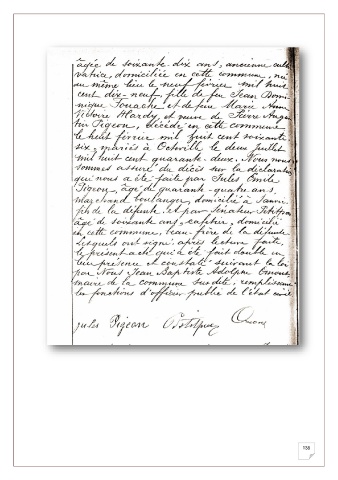 âgée de soixante-dix ans, ancienne culti
vatrice, domiciliée en cette commune, née
au même lieu le neuf février mil huit
cent dix-neuf, fille de feu Jean Domi
nique Fouache et de feue Marie Anne
Victoire Hardy, et veuve de Pierre Augus
tin Pigeon, décédé en cette commune
le huit février mil huit cent soixante
six, mariés à Octeville le deux juillet
mil huit cent quarante-deux. Nous nous
sommes assuré du décès sur la déclaration
qui nous a été faite par Jules Emile
Pigeon, âgé de quarante-quatre ans,
marchand boulanger, domicilié à
fils de la défunte. et par Sénateur
âgé de soixante ans, domicilié
en cette commune, beau-frère de la défunte
Lesquels ont signé, après lecture faite,
le présent acte qui a été fait double en
leur présence et constaté suivant la loi
par Nous Jean Baptiste Adolphe
maire de la commune susdite, remplissant
les fonctions d'officier public de l'état civil
jules Pigeon
138